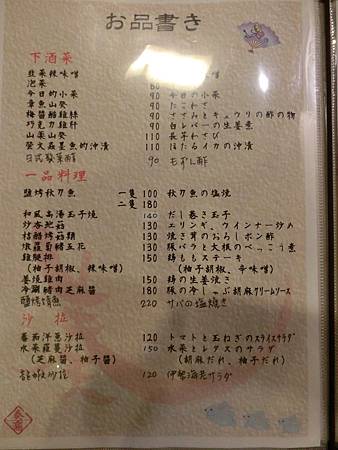 お品書き
下酒菜
韭菜辣味噌
泡菜 80
今日的小菜 90 今日の小菜
章魚山葵 90 たこわさ
梅醬醋雞絲 90 ささみとキュウリの酢の物
巧克力雞肝 90 白レバーの生姜煮
山藥山葵 110 長芋わさび
螢火蟲墨魚的沖漬 110 ほたるイカの沖漬
日式製藻醋 90 もずく酢
一品料理
鹽烤秋刀魚 一隻 100 秋刀魚の塩焼
二隻 180
和風高湯玉子燒 140 だし巻き玉子
炒杏鮑菇 130 エリンギ、ウインナー炒め
桔醋烤茄子 130 焼き茄のおろしポン酢
燉蘿蔔豬五花 130 豚バラと大根のべっこう煮
雞腿排 150 鶏ももステーキ
(柚子胡椒、辣味噌) (柚子胡椒、辛味噌)
薑燒雞肉 150 鶏の生姜焼き
冷涮豬肉芝麻醬 180 豚の冷しゃぶ胡麻クリームソース
鹽烤鯖魚 220 サバの塩焼き
沙拉
番茄洋蔥沙拉 120 トマトと玉ねぎのスライスサラダ
水菜蘿蔓沙拉 150 水菜とレタスのサラダ
(芝麻醬、柚子醬) (胡麻だれ、柚子だれ)
龍蝦沙拉 120 伊勢海老サラダ